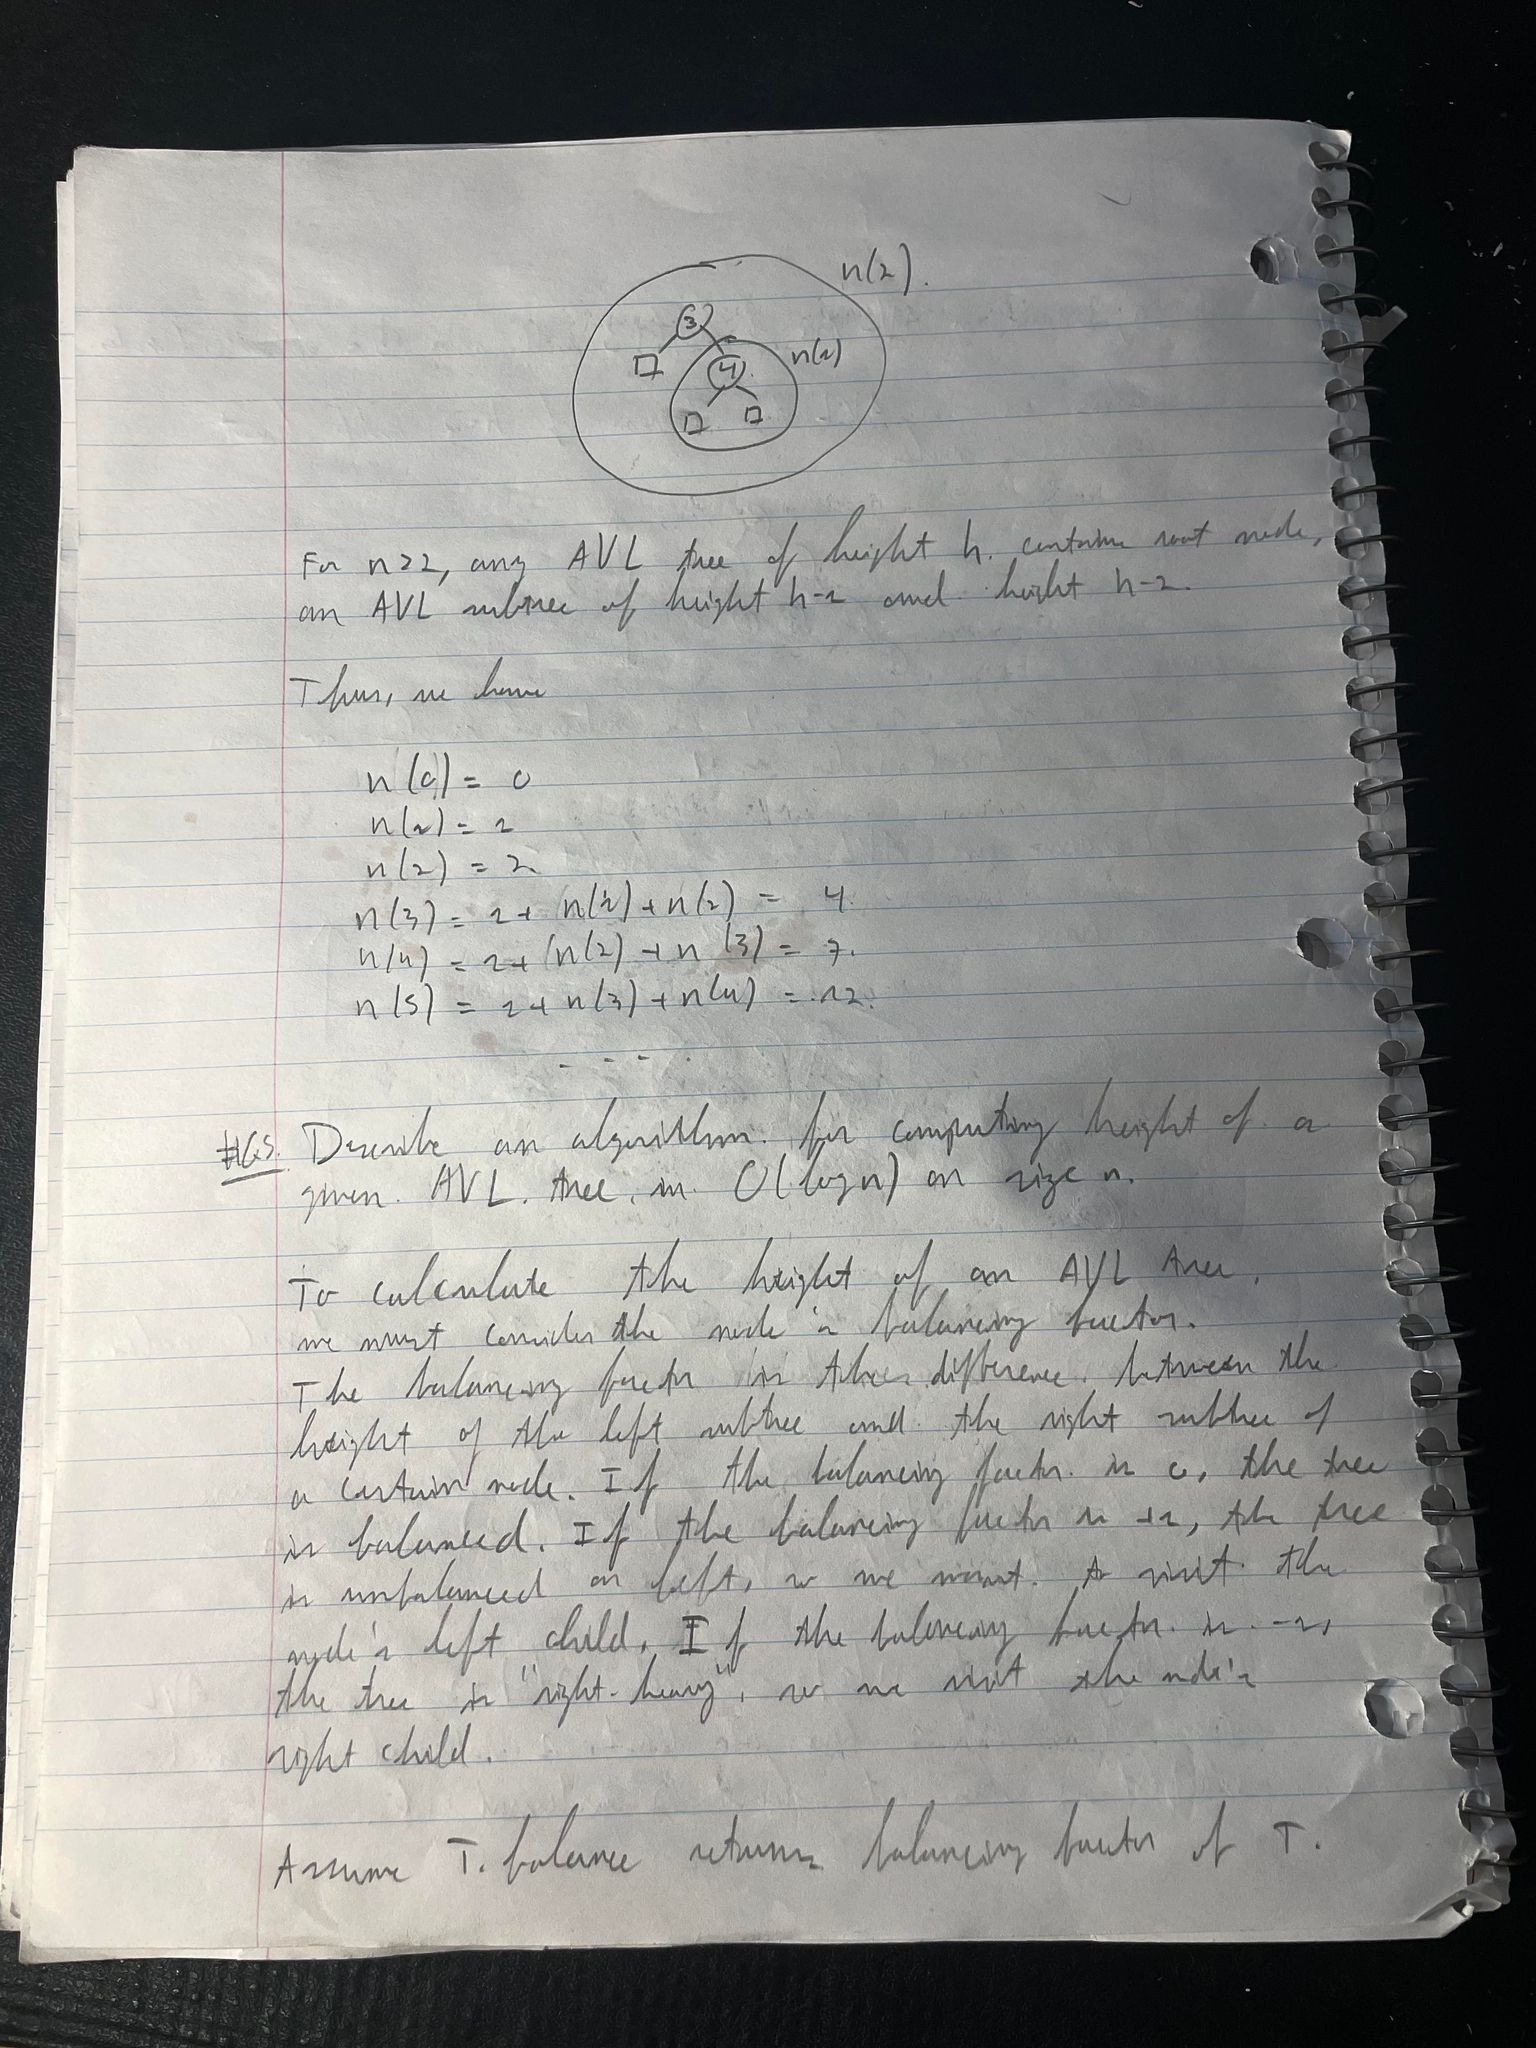 n(2).
3
n(1)
4
For n≥2, any AVL tree of height h. contains root node,
an AVL subtree of height h-1 and height h-2.
Thus, we have
n(0) = 0
n(1) = 1
n(2) = 2
n(3) = 1 + n(1) + n(2) = 4.
n(4) = 1 + n(2) + n(3) = 7.
n(5) = 1 + n(3) + n(4) = 12.
. . . .
Describe an algorithm. for computing height of a
given. AVL. tree. in. O(log n) on size n.
To calculate the height of an AVL tree,
we must consider the node's balancing factor.
The balancing factor is the difference. between the
height of the left subtree and the right subtree of
a certain node. If the balancing factor. is 0, the tree
is balanced. If the balancing factor is +1, the tree
is unbalanced on left, so we want. to visit the
node's left child. If the balancing factor. is -1,
the tree is "right-heavy", so we visit the node's
right child.
Assume T. balance returns balancing factor of T.